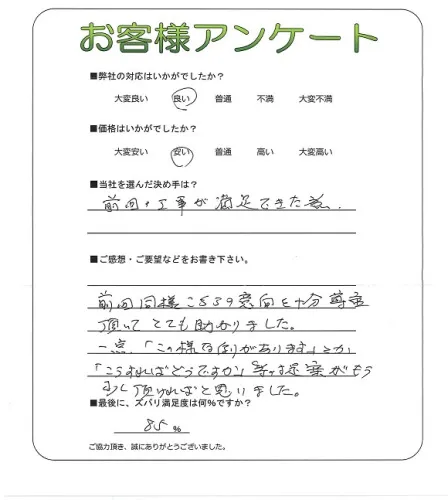 お客様アンケート
■弊社の対応はいかがでしたか？
大変良い 良い 普通 不満 大変不満
■価格はいかがでしたか？
大変安い 安い 普通 高い 大変高い
■当社を選んだ決め手は？
前回の工事が満足できた為。
■ご感想・ご要望などをお書き下さい。
前回同様こちらの意向を十分尊重
頂いてとても助かりました。
一点、「この様な例があります」とか
「こうすればどうですか」等の提案がもう
少し頂ければと思いました。
■最後に、ズバリ満足度は何％ですか？
85 %
ご協力頂き、誠にありがとうございました。